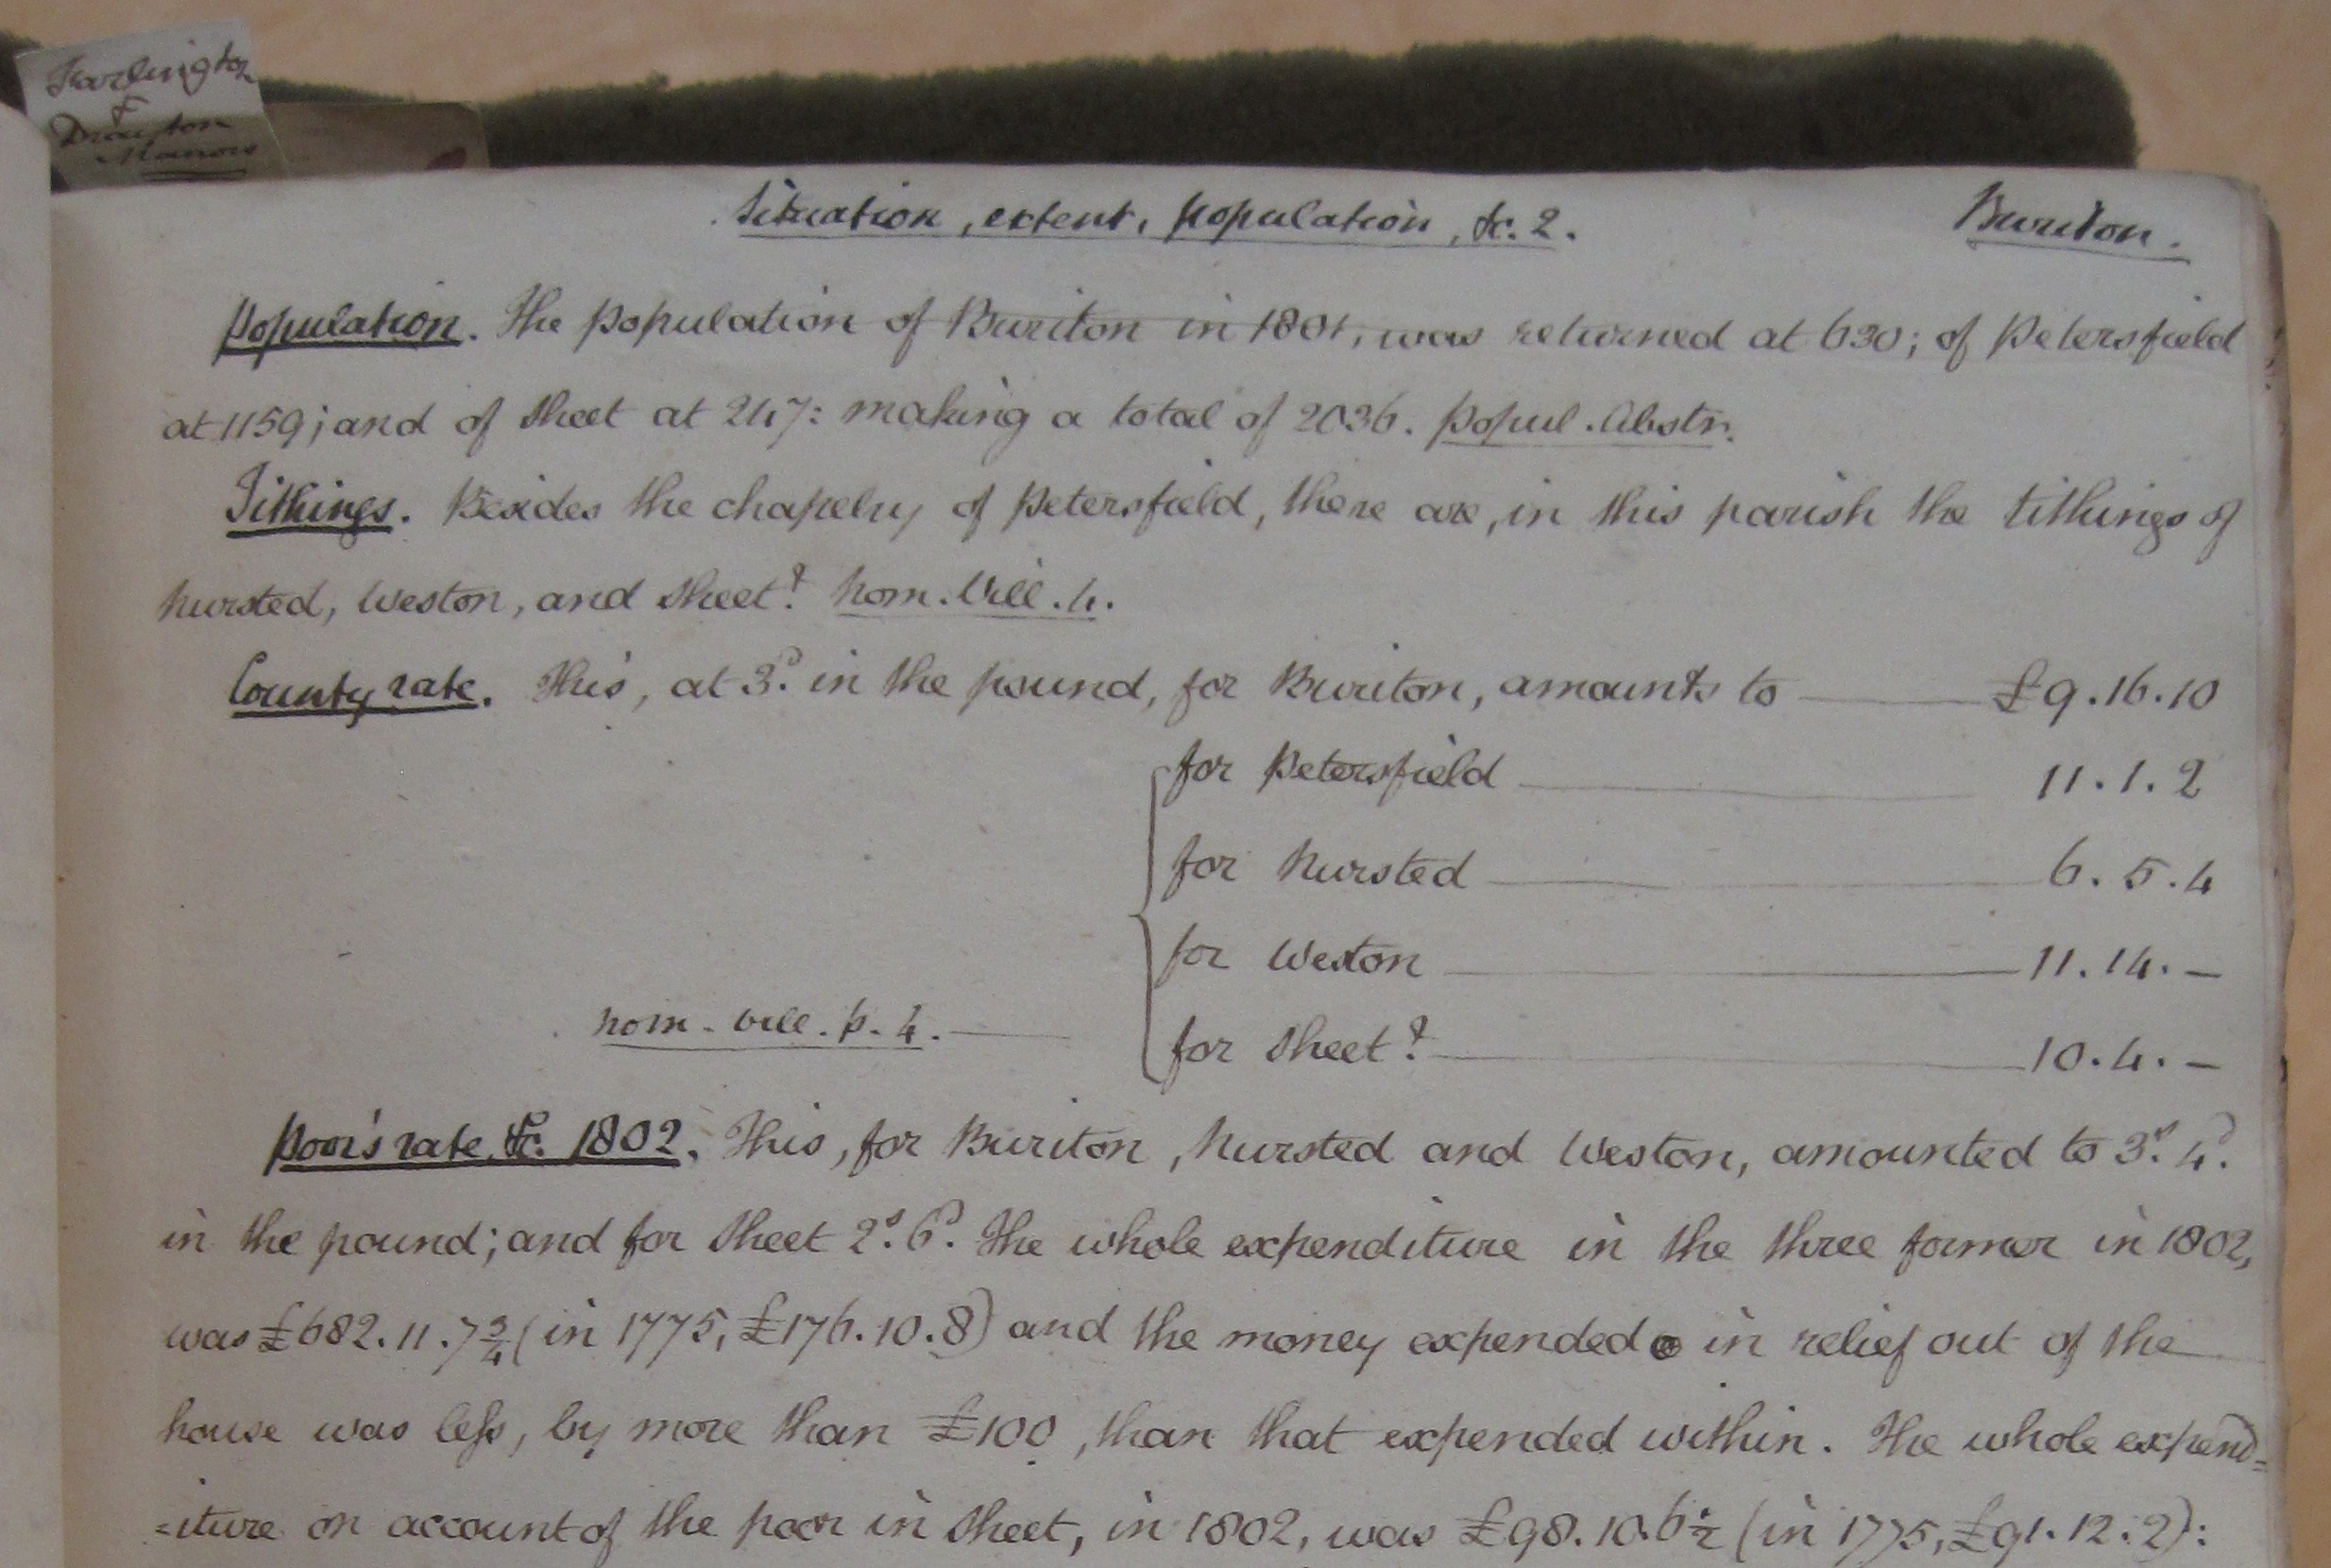 Farlington
&
Drayton
Manors
Situation, extent, population, &c. 2. Buriton.
Population. The population of Buriton in 1801, was returned at 630; of Petersfield
at 1159; and of Sheet at 247: making a total of 2036. Popul. Abstr.
Tithings. Besides the chapelry of Petersfield, there are, in this parish the tithings of
Nursted, Weston, and Sheet? Nom. Vill. 4.
County rate. This, at 3d. in the pound, for Buriton, amounts to £9.16.10
for Petersfield 11.1.2
for Nursted 6.5.4
for Weston 11.14.–
nom. vill. p. 4. for Sheet? 10.4.–
Poor's rate, &c. 1802. This, for Buriton, Nursted and Weston, amounted to 3s. 4d.
in the pound; and for Sheet 2s. 6d. The whole expenditure in the three former in 1802,
was £682.11.7¾ (in 1775, £176.10.8) and the money expended in relief out of the
house was less, by more than £100, than that expended within. The whole expend=
=iture on account of the poor in Sheet, in 1802, was £98.10.6½ (in 1775, £91.12.2):